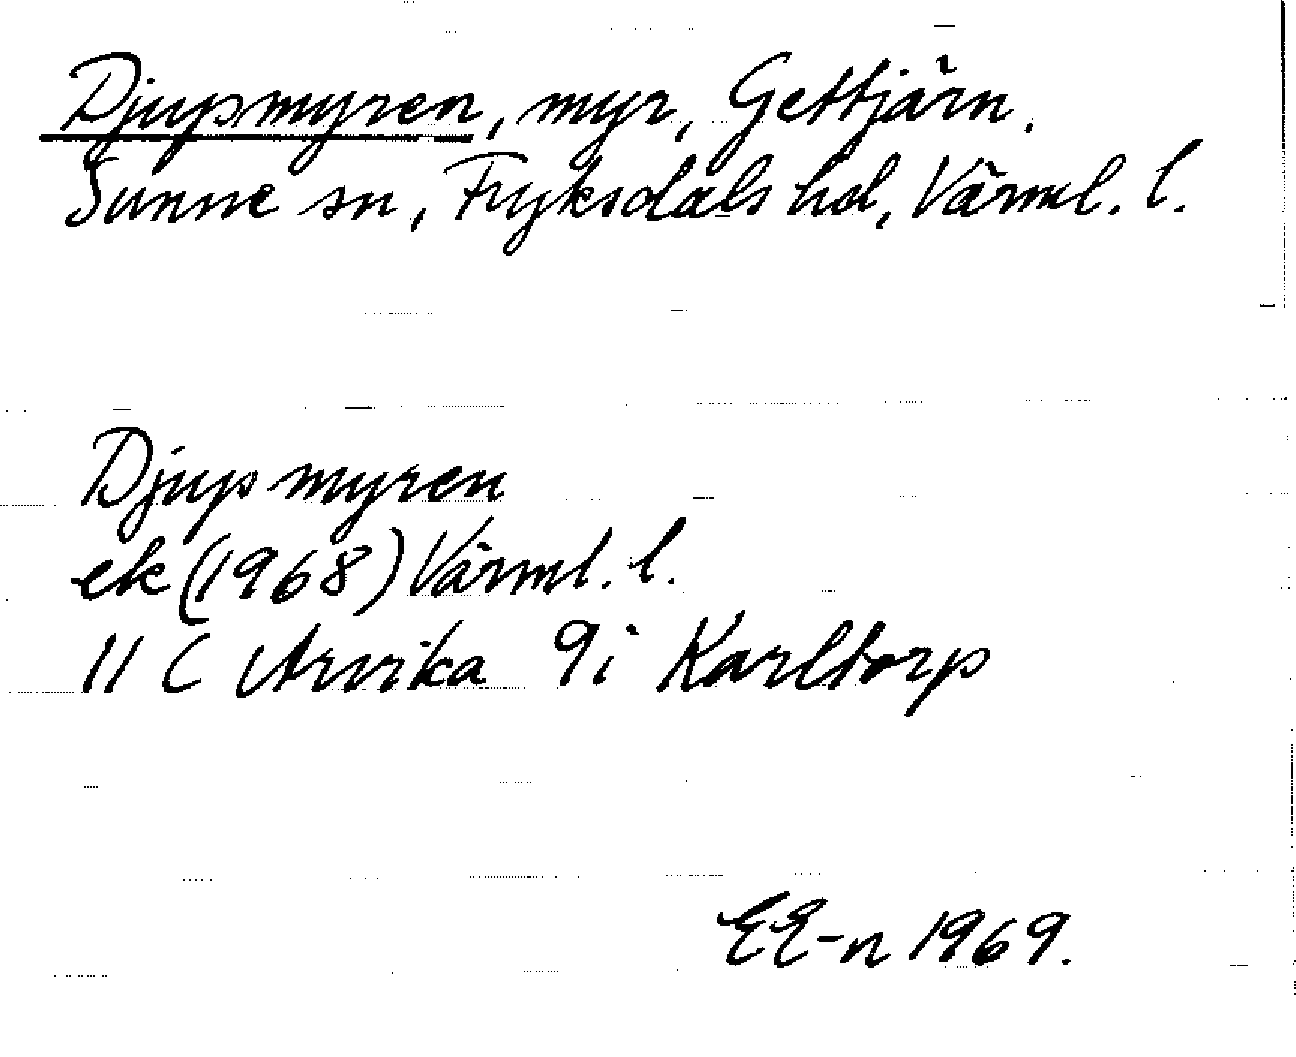 Djupsmyren, myr, Gettjärn.
Sunne sn, Fryksdals hd, Värml. l.
Djupsmyren
ek (1968) Värml. l.
11 C Arvika 9i Karltorp
EE-n 1969.